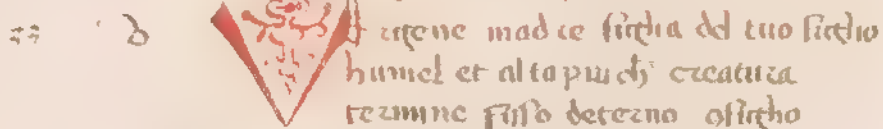 Vırgene madre figlia del tuo figlio
humel et alta piu ch' creatura
termine fisso deterno ɔsiglio